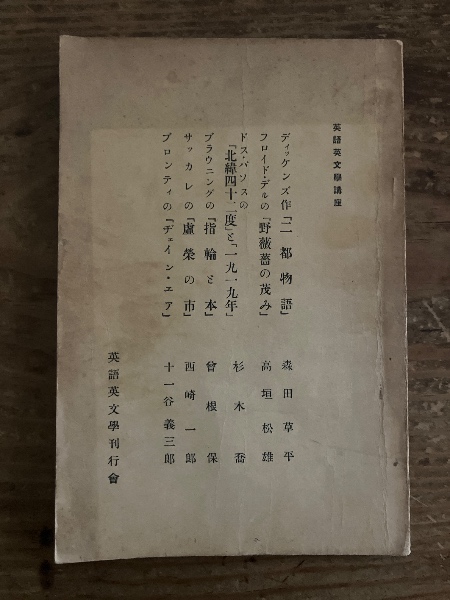 英語英文學講座
ディッケンズ作『二都物語』 森田草平
フロイド・デルの『野薔薇の茂み』 高垣松雄
ドス・パソスの
『北緯四十二度』と『一九一九年』 杉木喬
ブラウニングの『指輪と本』 曾根保
サッカレの『虛榮の市』 西崎一郎
ブロンティの『ヂェイン・エア』 十一谷義三郎
英語英文學刊行會